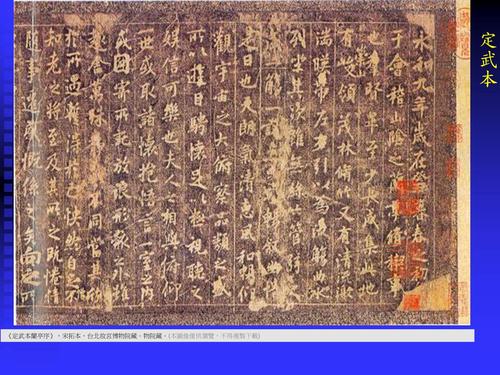 定武本
永和九年歲在癸丑暮春之初
于會稽山陰之蘭亭脩稧事
也羣賢畢至少長咸集此地
有峻領茂林脩竹又有清流激
湍暎帶左右引以為流觴曲水
列坐其次雖無絲竹管弦
一觴一詠亦足以暢敘幽情
是日也天朗氣清惠風和暢仰
觀宇宙之大俯察品類之盛
所以遊目騁懷足以極視聽之
娛信可樂也夫人之相與俯仰
一世或取諸懷抱悟言一室之內
或因寄所託放浪形骸之外雖
趣舍萬殊靜躁不同當其欣
於所遇暫得於己快然自足不
知老之將至及其所之既惓情
隨事遷感慨係之矣向之所
《定武本蘭亭序》，宋拓本，台北故宮博物院藏。物院藏。(本圖像僅供瀏覽，不得複製下載)